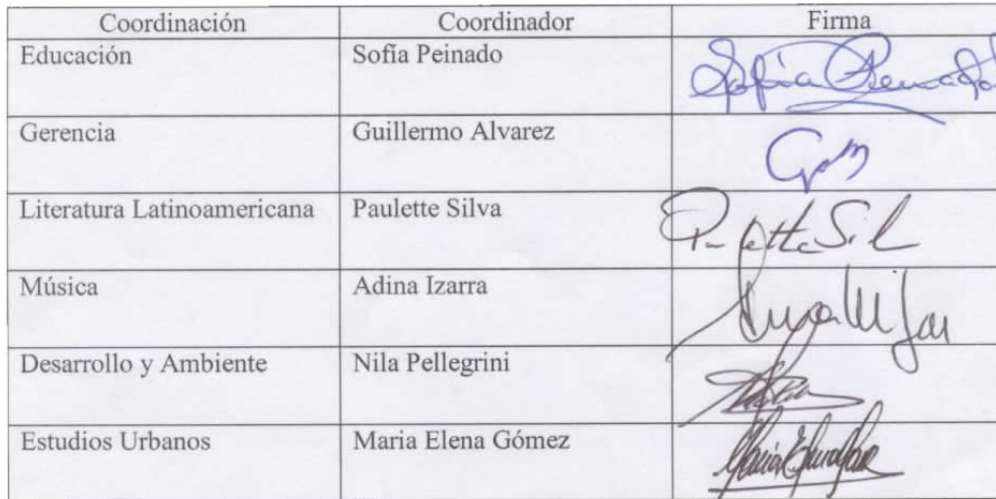 Coordinación Coordinador Firma
Educación Sofía Peinado Sofía Peinado
Gerencia Guillermo Alvarez
Literatura Latinoamericana Paulette Silva
Música Adina Izarra
Desarrollo y Ambiente Nila Pellegrini
Estudios Urbanos Maria Elena Gómez